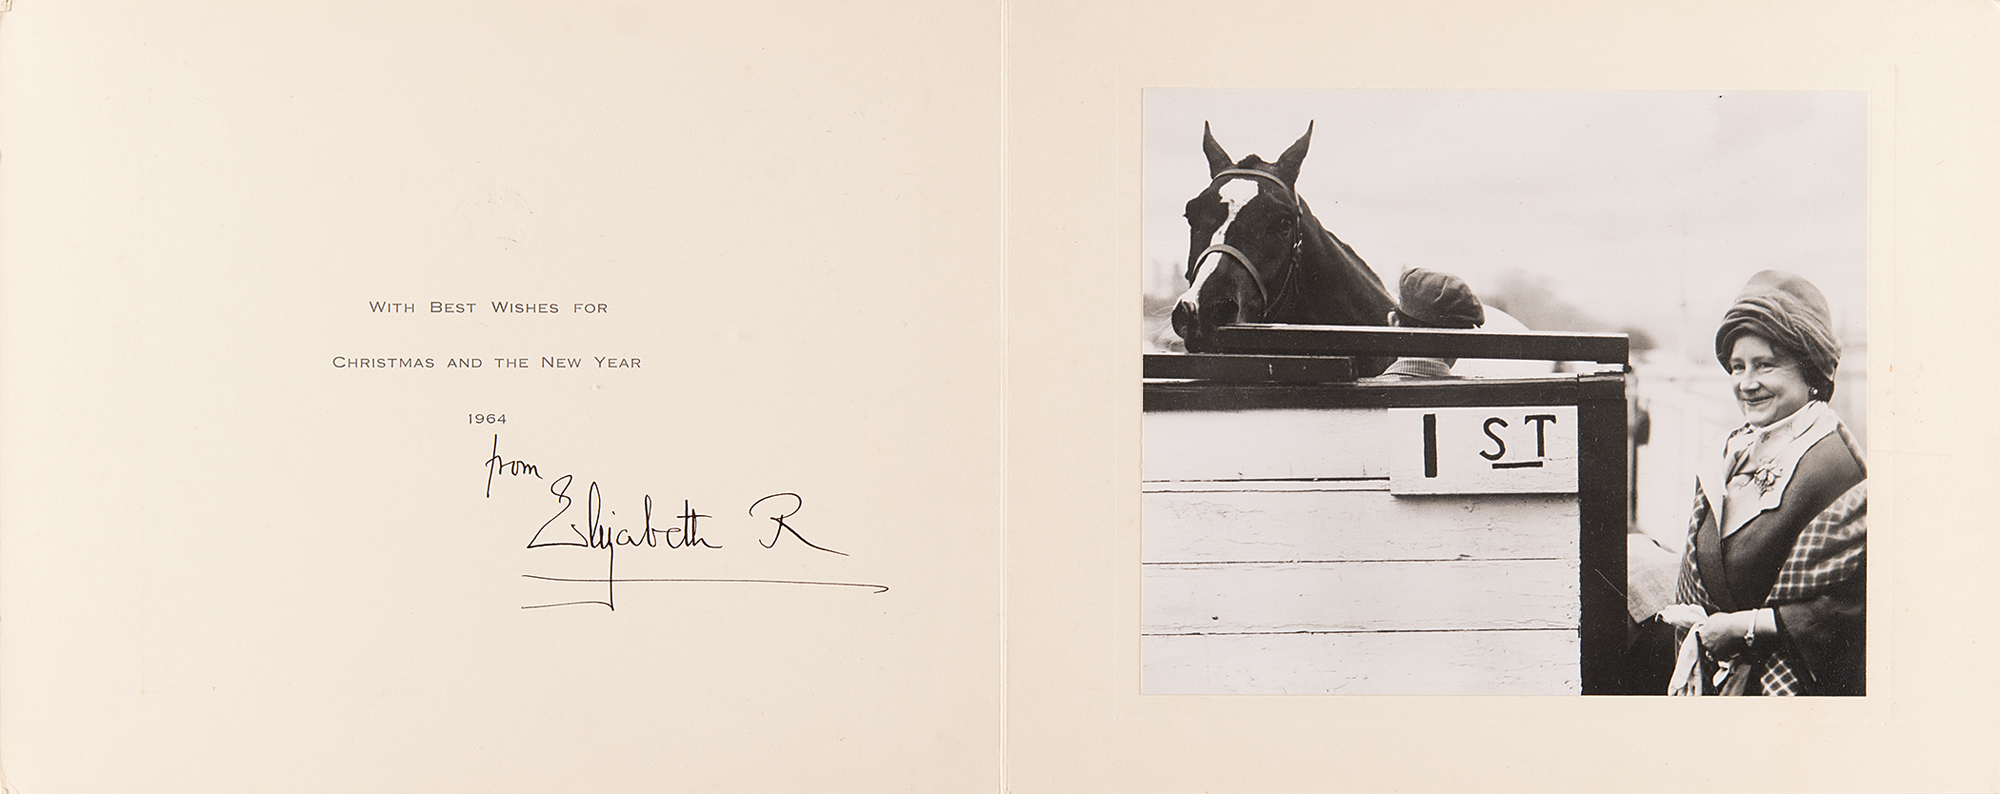 With Best Wishes for
Christmas and the New Year
1964
from
Elizabeth R
1ST